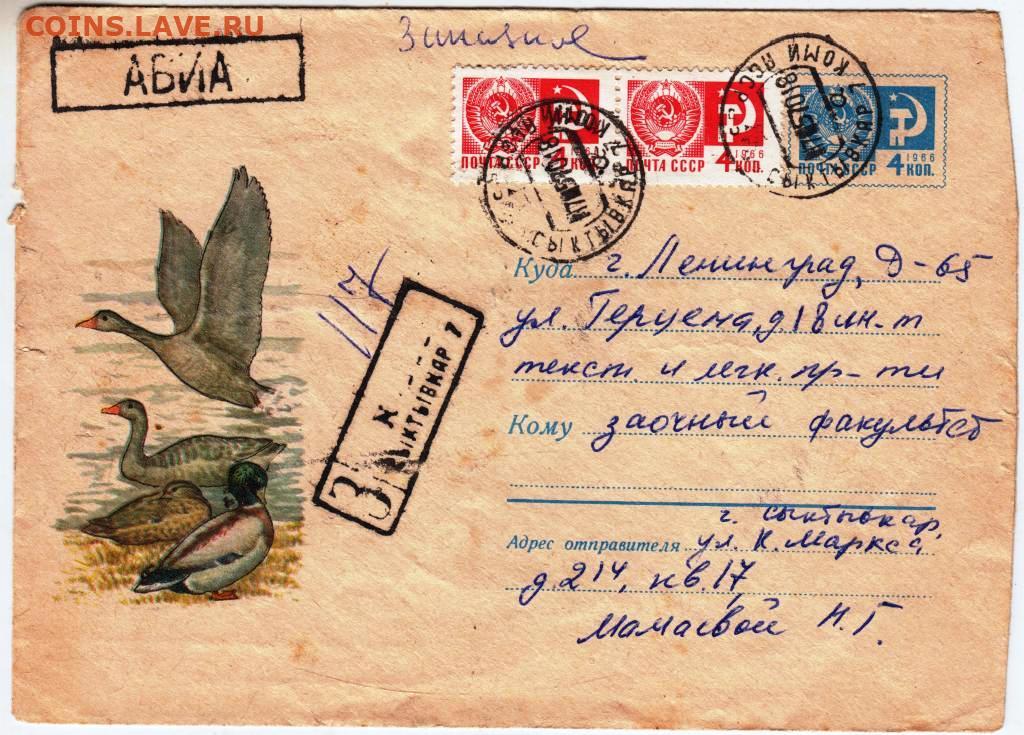 COINS.LAVE.RU
Заказная
АВИА
ПОЧТА СССР 4 КОП.
1966
ПОЧТА СССР 4 КОП.
1966
ПОЧТА СССР 4 КОП.
СЫКТЫВКАР КОМИ АССР
СЫКТЫВКАР КОМИ АССР
Куда г. Ленинград, Д-65
ул. Герцена, д 18 ин-т
текст. и легк. пр-ти
Кому заочный факультет
З
СЫКТЫВКАР 7
г. Сыктывкар,
Адрес отправителя ул. К. Маркса
д. 214, кв. 17,
Мамаевой Н. Г.